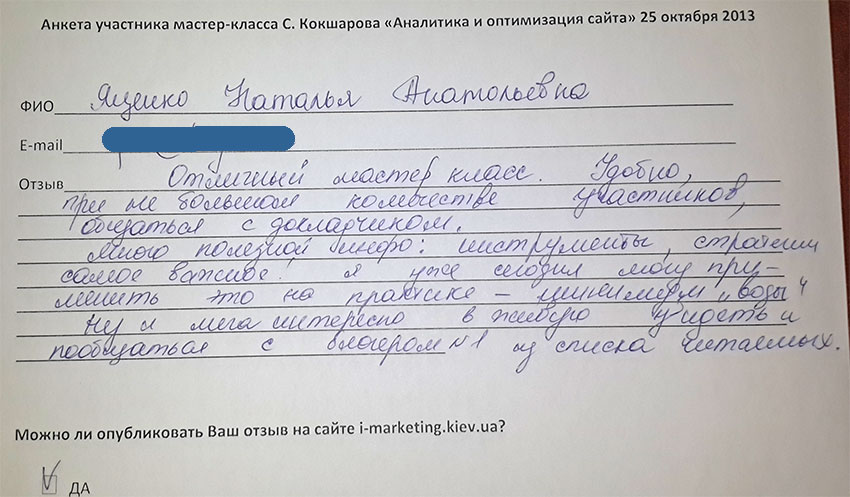 Анкета участника мастер-класса С. Кокшарова «Аналитика и оптимизация сайта» 25 октября 2013
ФИО Ященко Наталья Анатольевна
E-mail
Отзыв Отличный мастер класс. Удобно,
при не большом количестве участников,
общаться с докладчиком.
Много полезной инфо: инструменты, стратегии
самое важное: я уже сегодня могу при-
менить это на практике – минимум „воды"
Ну и мега интересно в живую увидеть и
пообщаться с блогером №1 из списка читаемых.
Можно ли опубликовать Ваш отзыв на сайте i-marketing.kiev.ua?
ДА